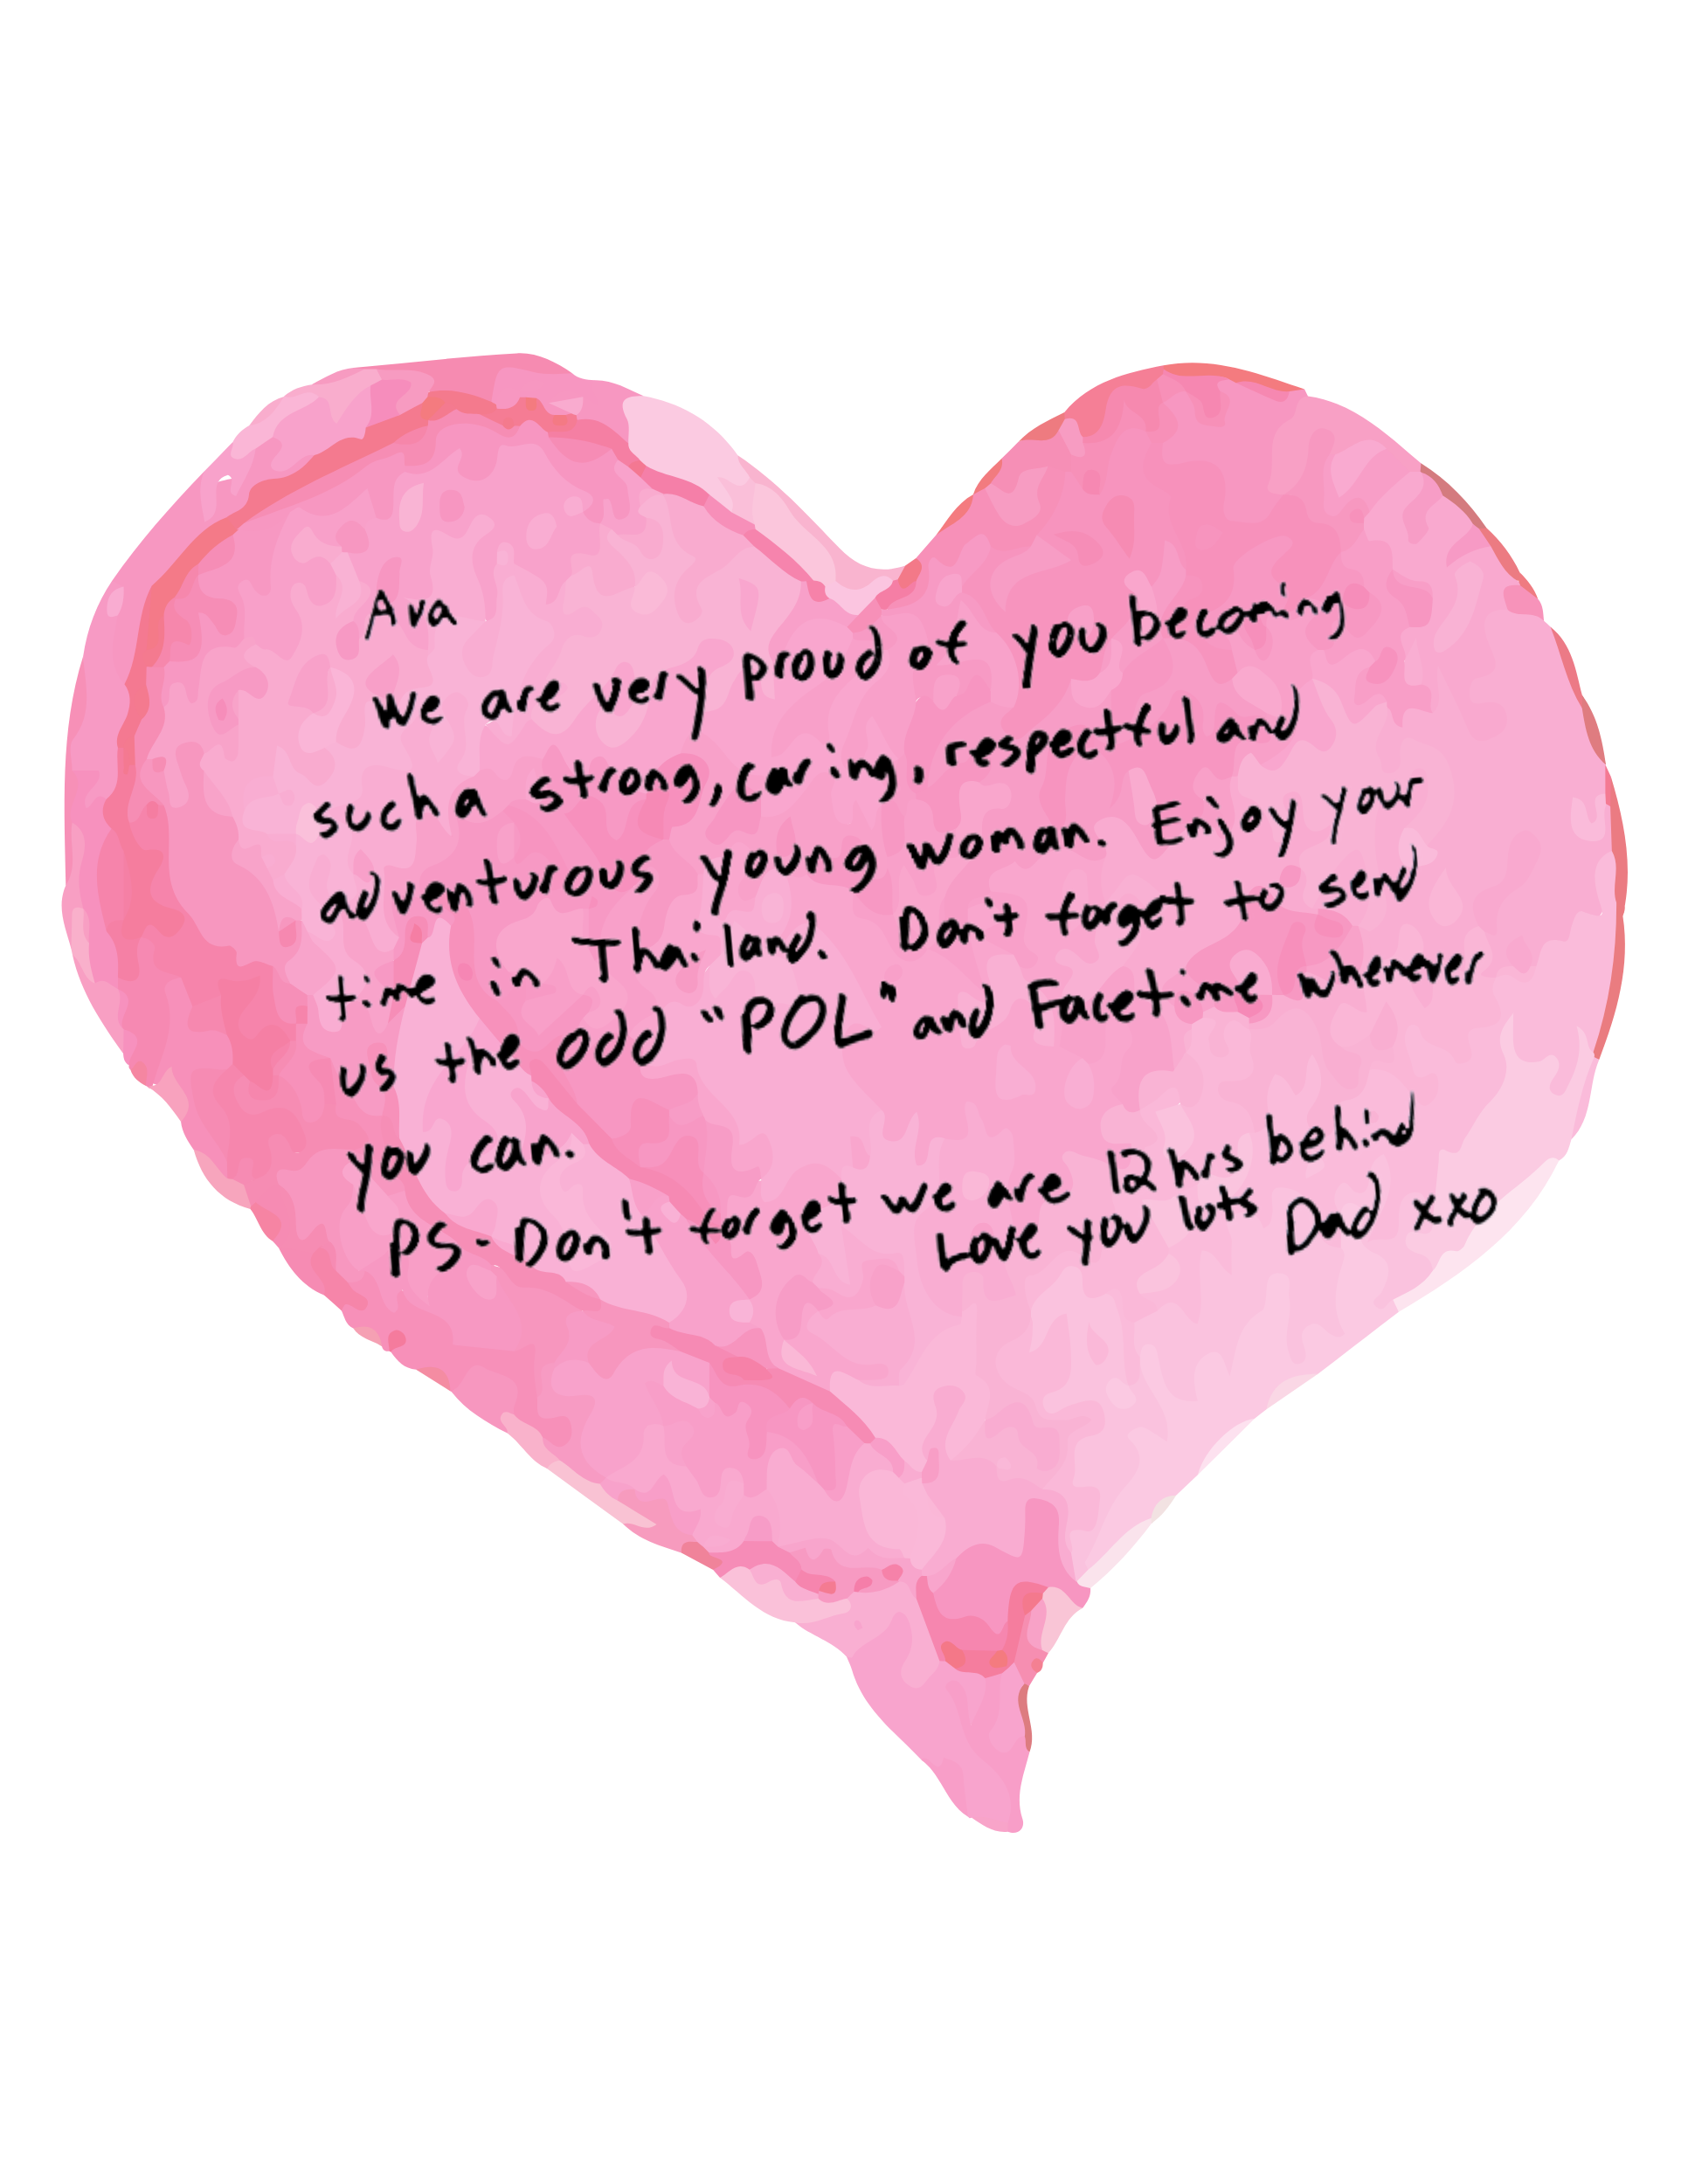 Ava
We are very proud of you becoming
such a strong, caring, respectful and
adventurous young woman. Enjoy your
time in Thailand. Don't forget to send
us the odd "POL" and Facetime whenever
you can.
PS - Don't forget we are 12 hrs behind
Love you lots Dad xxo